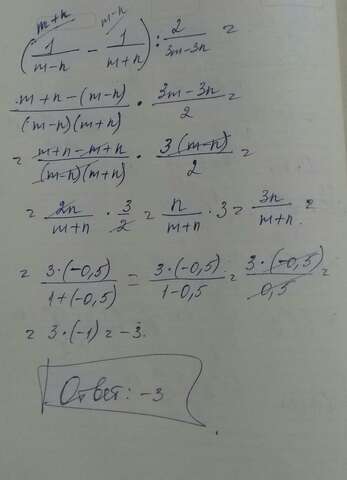 m+n m-n
(1/(m-n) - 1/(m+n)) : 2/(3m-3n) =
(m+n-(m-n))/((m-n)(m+n)) · (3m-3n)/2 =
= (m+n-m+n)/((m-n)(m+n)) · 3(m-n)/2 =
= 2n/(m+n) · 3/2 = n/(m+n) · 3 = 3n/(m+n) =
= 3·(-0,5)/(1+(-0,5)) = 3·(-0,5)/(1-0,5) = 3·(-0,5)/0,5 =
= 3·(-1) = -3.
Ответ: -3